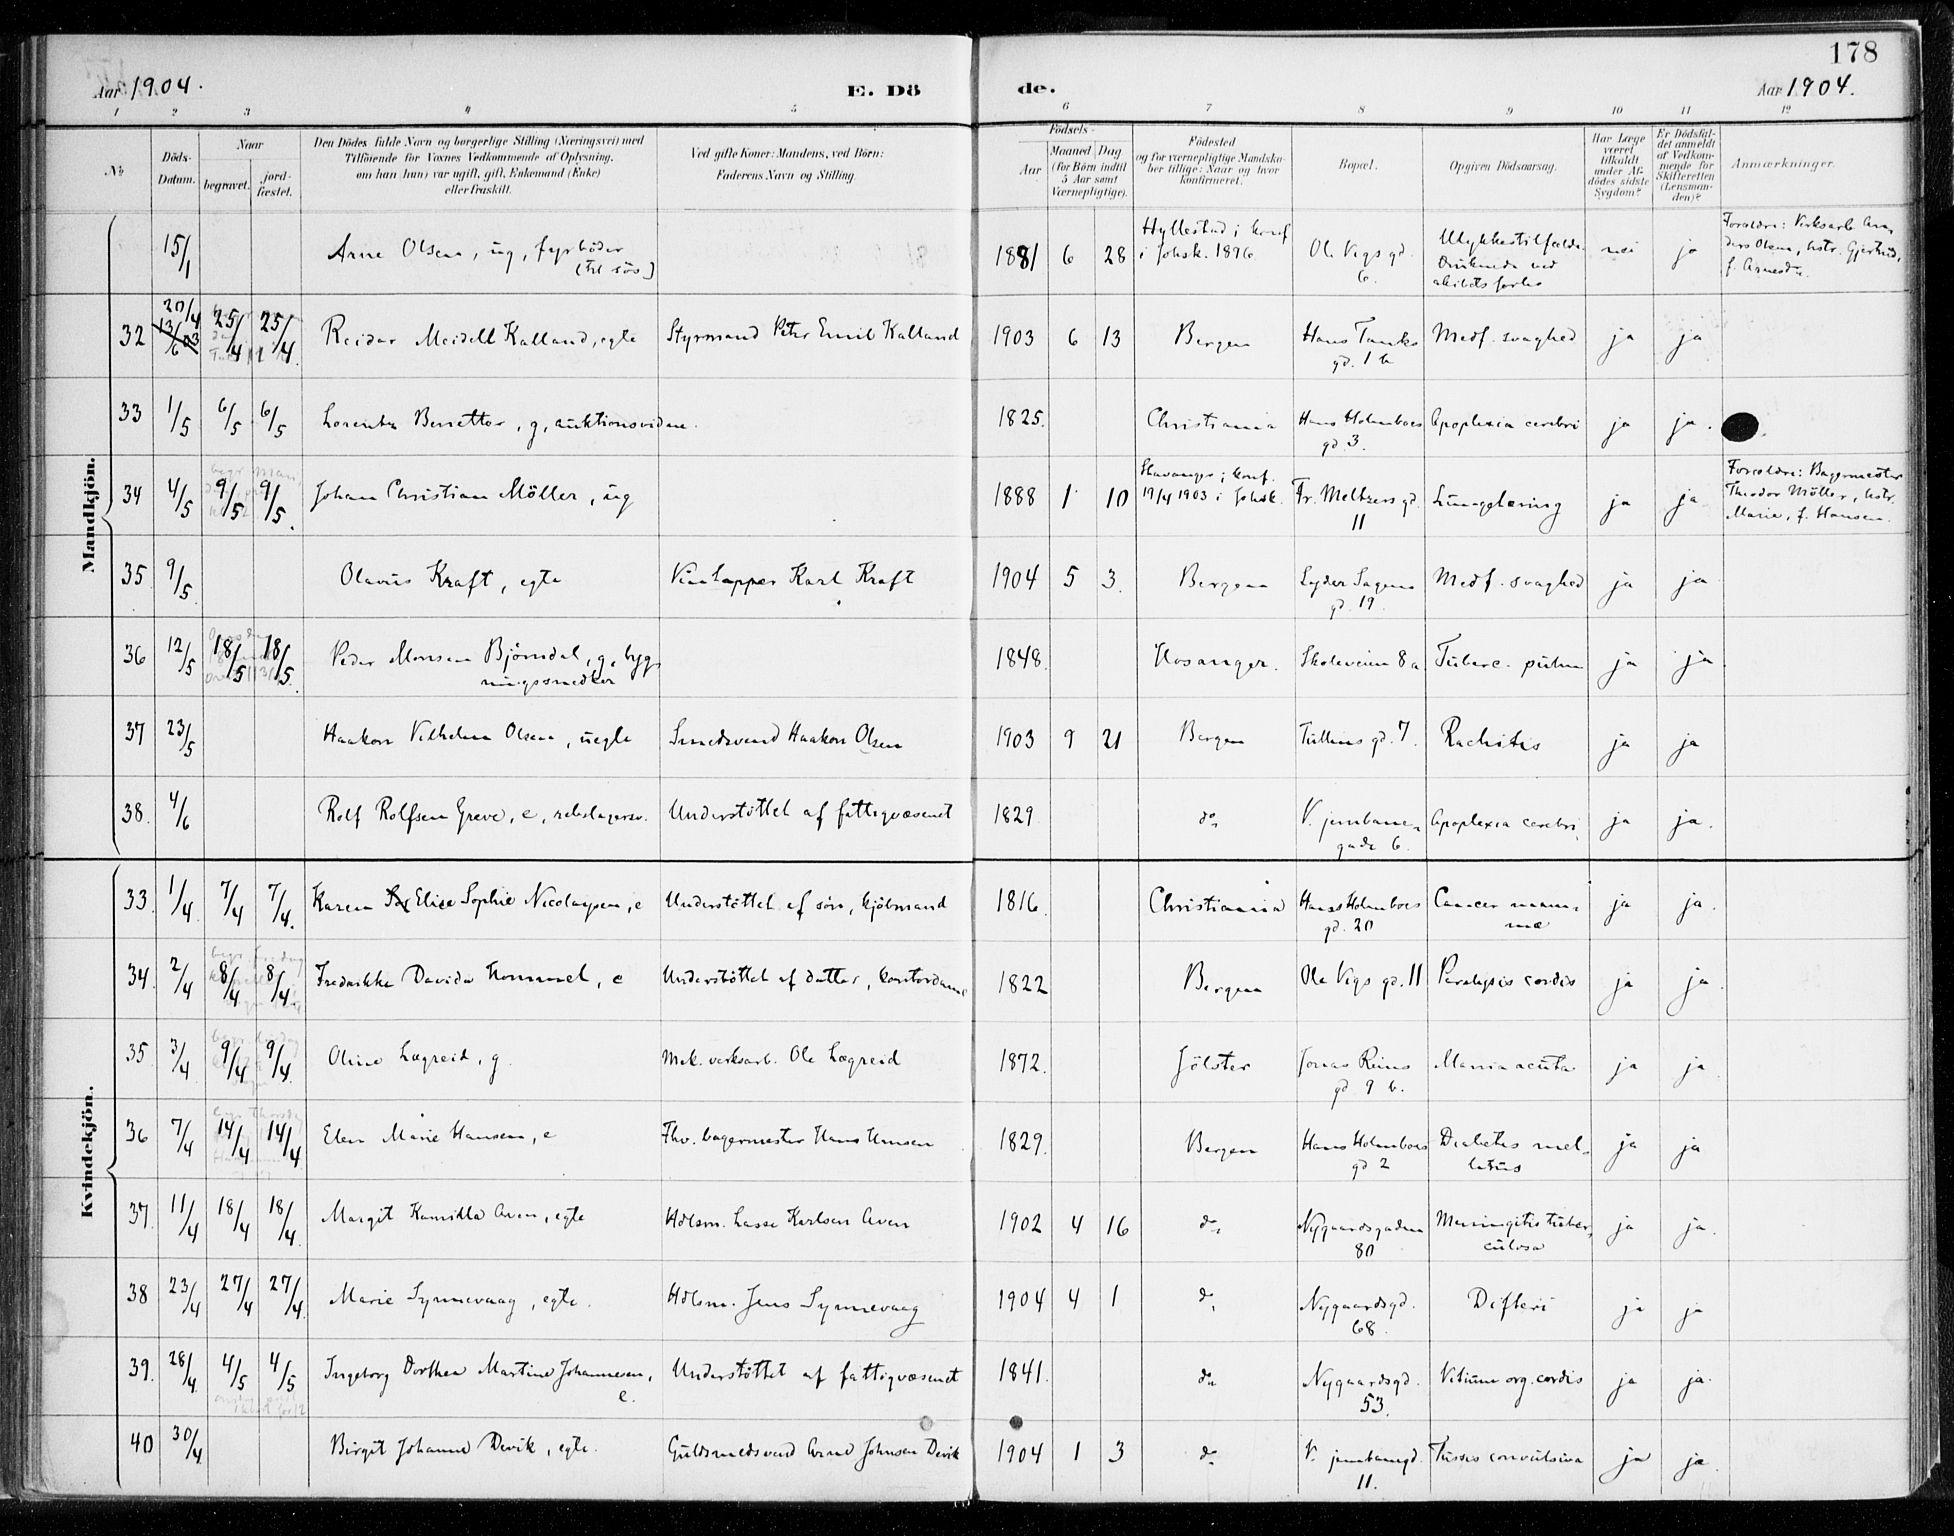 178
Aar 1904. E. Dö de. Aar 1904.
1 2 3 4 5 6 7 8 9 10 11 12
No.
Döds-Datum.
Naar
begravet.
jord-fæstet.
Den Dödes fulde Navn og borgerlige Stilling (Næringsvei) med
Tilföiende for Voxnes Vedkommende af Oplysning,
om han (hun) var ugift, gift, Enkemand (Enke)
eller fraskilt.
Ved gifte Koner: Mandens, ved Börn:
Faderens Navn og Stilling.
Födsels-
Aar
Maaned Dag
(for Börn indtil
5 Aar samt
Værnepligtige).
Födested
og for værnepligtige Mandska-
ber tillige: Naar og hvor
konfirmeret.
Bopæl.
Opgiven Dödsaarsag.
Har Læge
været
tilkaldt
under Af-
dödes sidste
Sygdom?
Er Dödsfal-
det anmeldt
af Vedkom-
mende for
Skifteretten
(Lensman-
den)?
Anmærkninger.
Mandkjön.
15/1 Arne Olsen, ug, fyrböder (til sös) 1881 6 28 Hyllestad; konf. i Johsk. 1896 Ole Vigs gd. 6. Ulykkestilfælde. Druknede ved skibets forlis nei ja Forældre: Verksarb. Anders Olsen, hstr. Gjertrud, f. Arnesdr.
32 20/4 13/6 03 25/4 25/4 Reidar Meidell Kalland, egte Styrmand Peter Emil Kalland 1903 6 13 Bergen Hans Tanks gd. 1 b Medf. svaghed ja ja
33 1/5 6/5 6/5 Lorentz Berretter, g, auktionsvidne. 1825. Christiania Hans Holmboes gd 3. Apoplexia cerebri ja ja.
34 4/5 9/5 9/5. Johan Christian Möller, ug 1888 1 10 Stavanger; konf. 19/4 1903 i Johsk. Fr. Meltzers gd. 11 Lungetæring ja ja Forældre: Bagermester Theodor Möller, hstr. Marie, f. Hansen.
35 9/5. Olavus Kraft, egte Karl Kraft 1904 5 3. Bergen Lyder Sagens gd. 19. Medf. svaghed ja ja
36 12/5 18/5 18/5. Peder Monsen Björndal, g, bygningssnedker 1848. Hosanger. Skoleveien 8 a Tuberc. pulm ja ja
37 23/5 Haakon Vilhelm Olsen, uegte Smedsvend Haakon Olsen 1903 9 21 Bergen Tullins gd. 7. Rachitis ja ja
38. 4/6 Rolf Rolfsen Greve, e, rebslagersv. Understöttet af fattigvæsenet 1829 do. V. jernbanegade 6. Apoplexia cerebri, ja ja.
Kvindekjön.
33. 1/4. 7/4 7/4. Karen Elise Sophie Nicolaysen, e Understöttet af sön, kjöbmand 1816. Christiania Hans Holmboes gd. 20 Cancer mammæ ja ja.
34. 2/4 8/4 8/4. Fredrikke Davida Trommel, e Understöttet af datter, kontordame 1822 Bergen Ole Vigs gd. 11 Paralysis cordis ja ja
35 3/4. 9/4 9/4. Oline Lægreid, g. Mek. verksarb. Ole Lægreid 1872. Jölster Jonas Reins gd 9 b. Mania acuta ja ja
36 7/4 14/4 14/4 Elen Marie Hansen, e Fhv. bagermester Hans Hansen 1829. Bergen Hans Holmboes gd 2 Diabetes mellitus ja ja
37. 11/4 18/4 18/4. Margit Kamilla Aven, egte Hdlsm. Lasse Karlsen Aven 1902 4 16 do. Nygaardsgaden 80 Meningitis tuberculosa ja ja.
38 23/4 27/4 27/4. Marie Synnevaag, egte. Hdlsm. Jens Synnevaag 1904 4 1 do. Nygaardsgd. 68. Difteri ja ja
39. 28/4. 4/5 4/5 Ingeborg Dorthea Martine Johannesen, e. Understöttet af fattigvæsenet 1841. do. Nygaardsgd. 53. Vitium org. cordis ja ja.
40 30/4. Birgit Johanne Devik, egte. Guldsmedsvend Arne Johnsen Devik 1904 1 3 do. V. jernbanegd. 11. Tussis convulsiva ja ja.